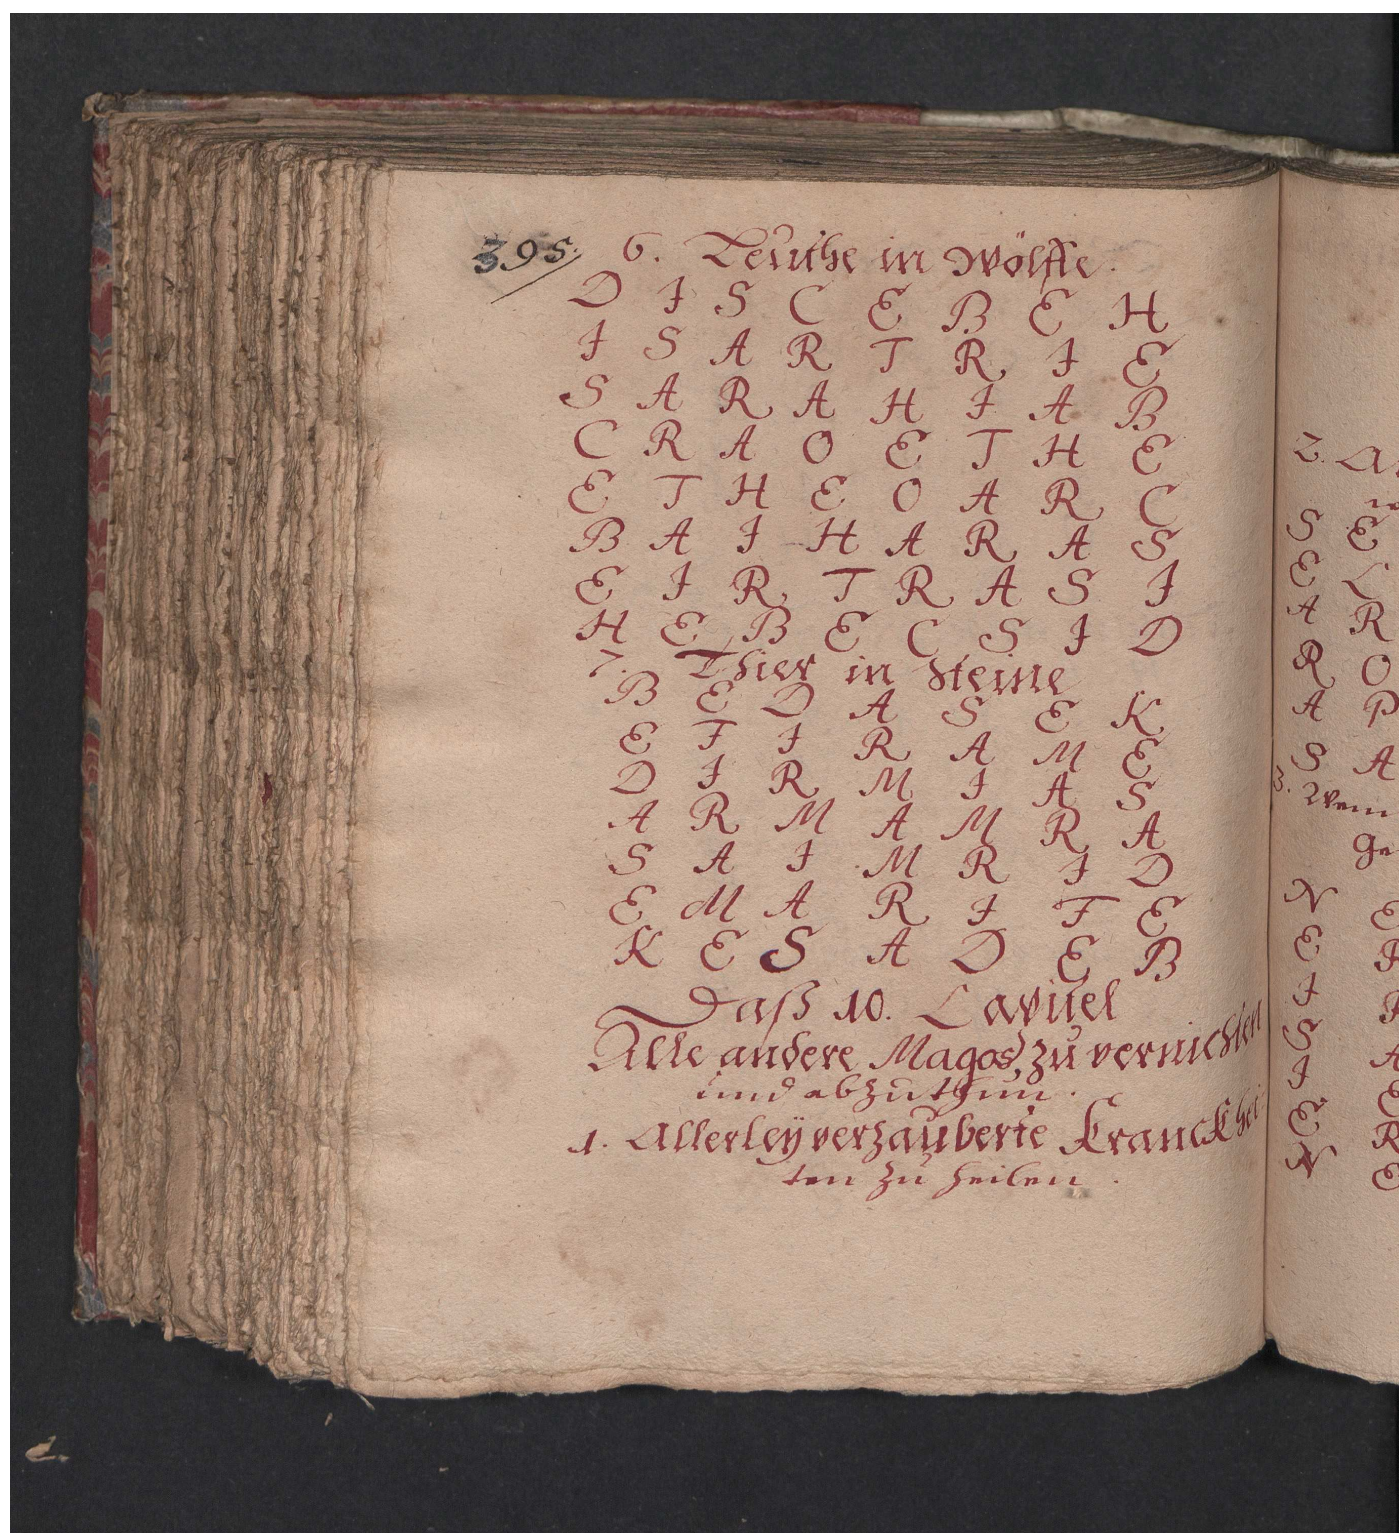 395.
6. Leuthe in Wölffe.
D I S C E B E H
I S A R T R I E
S A R A H I A B
C R A O E T H E
E T H E O A R C
B A I H A R A S
E I R T R A S I
H E B E C S I D
7. Thier in Steine
B E D A S E K
E F I R A M E
D I R M I A S
A R M A M R A
S A I M R I D
E M A R I F E
K E S A D E B
Daß 10. Capitel
Alle andere Magos, zu vernichten
und abzuthun.
1. Allerley verzauberte Kranckhei
ten zu heilen.
2. A
S E
E L
A R
R O
A P
S A
3. Wem
Ge
N E
E
I
S
I A
E R
N E